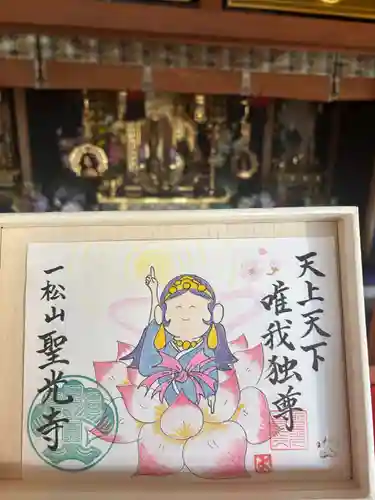 天上天下
唯我独尊
一松山
聖光寺